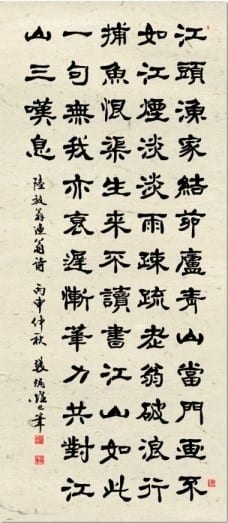 江頭漁家結茆廬青山當門畫不
如江煙淡淡雨疎疏老翁破浪行
捕魚恨渠生來不讀書江山如此
一句無我亦衰遲慚筆力共對江
山三嘆息
陸放翁漁翁詩 丙申仲秋